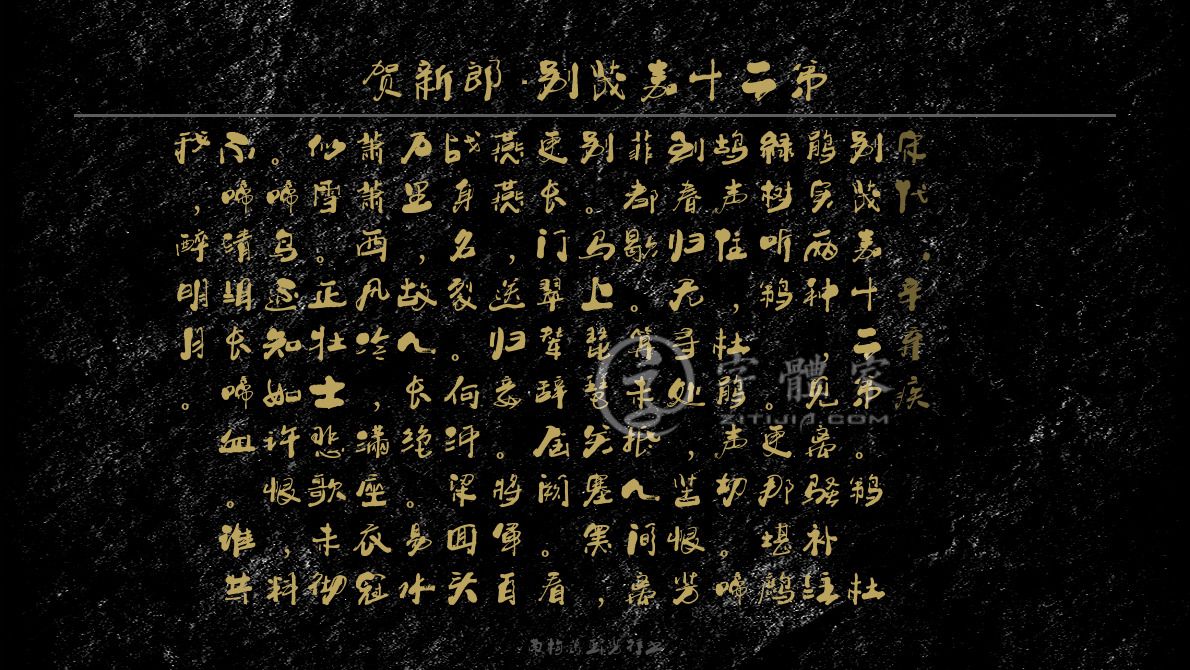 贺新郎·别茂嘉十二弟
宋代，辛弃疾
别茂嘉十二弟。鹈杜
鹃实两种，见离骚补注
绿树听鹈。更那堪鹧
鸪声住，杜鹃声切。啼
到春归无寻处，苦恨芳
菲都歇。算未抵人间离
别。马上琵琶关塞黑，
更长门翠辇辞金阙。看
燕燕，送归妾。将军百
战身名裂。向河梁回头
万里，故人长绝。易水
萧萧西风冷，满座衣冠
似雪。正壮士悲歌未彻
。啼鸟还知如许恨，料
不啼清泪长啼血。谁共
我，醉明月。
字體家
ZITIJIA.COM